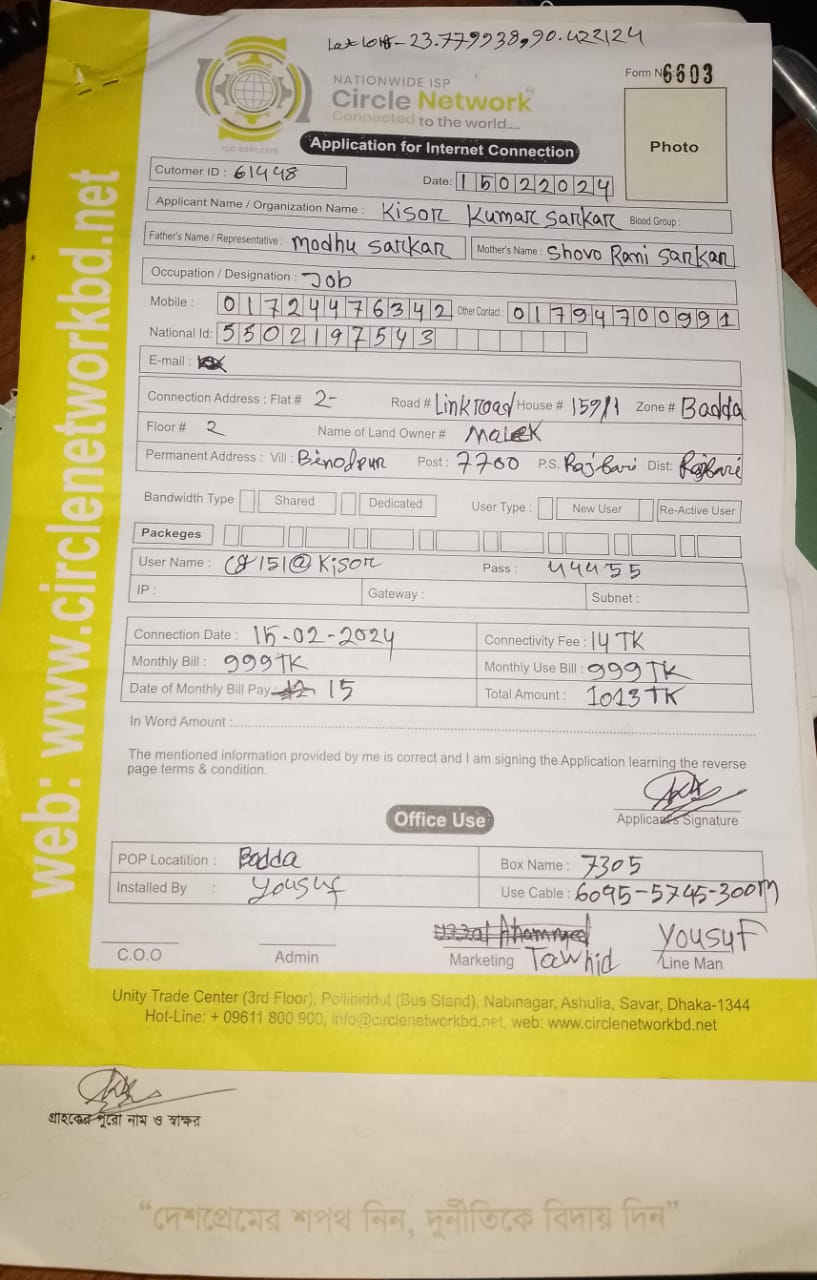 Lat Lon - 23.779938,90.422124
Form N 6603
NATIONWIDE ISP
Circle Network
Connected to the world.....
ISO 9001:2015
Photo
Application for Internet Connection
Cutomer ID : 61448 Date: 15022024
Applicant Name / Organization Name : Kisor Kumar Sarkar Blood Group :
Father's Name / Representative : Modhu Sarkar Mother's Name : Shovo Rani Sarkar
Occupation / Designation : Job
Mobile : 01724476342 Other Contact : 01794700991
National Id: 5502197543
E-mail :
Connection Address : Flat # 2- Road # Link road House # 159/1 Zone # Badda
Floor # 2 Name of Land Owner # Malek
Permanent Address : Vill : Binodpur Post : 7700 P.S. Rajbari Dist: Rajbari
Bandwidth Type Shared Dedicated User Type : New User Re-Active User
Packeges
User Name : 151@Kisor Pass : 44455
IP : Gateway : Subnet :
Connection Date : 15-02-2024 Connectivity Fee : 14 TK
Monthly Bill : 999TK Monthly Use Bill : 999 TK
Date of Monthly Bill Pay : 15 Total Amount : 1013 TK
In Word Amount :
The mentioned information provided by me is correct and I am signing the Application learning the reverse
page terms & condition.
Applicant's Signature
Office Use
POP Locatition : Badda Box Name : 7305
Installed By : Yousuf Use Cable : 6095-5745-300m
Ahammed Yousuf
C.O.O Admin Marketing Tawhid Line Man
Unity Trade Center (3rd Floor), Pollibiddut (Bus Stand), Nabinagar, Ashulia, Savar, Dhaka-1344
Hot-Line: + 09611 800 900, info@circlenetworkbd.net, web: www.circlenetworkbd.net
web: www.circlenetworkbd.net
গ্রাহকের পুরো নাম ও স্বাক্ষর
“দেশপ্রেমের শপথ নিন, দুর্নীতিকে বিদায় দিন”